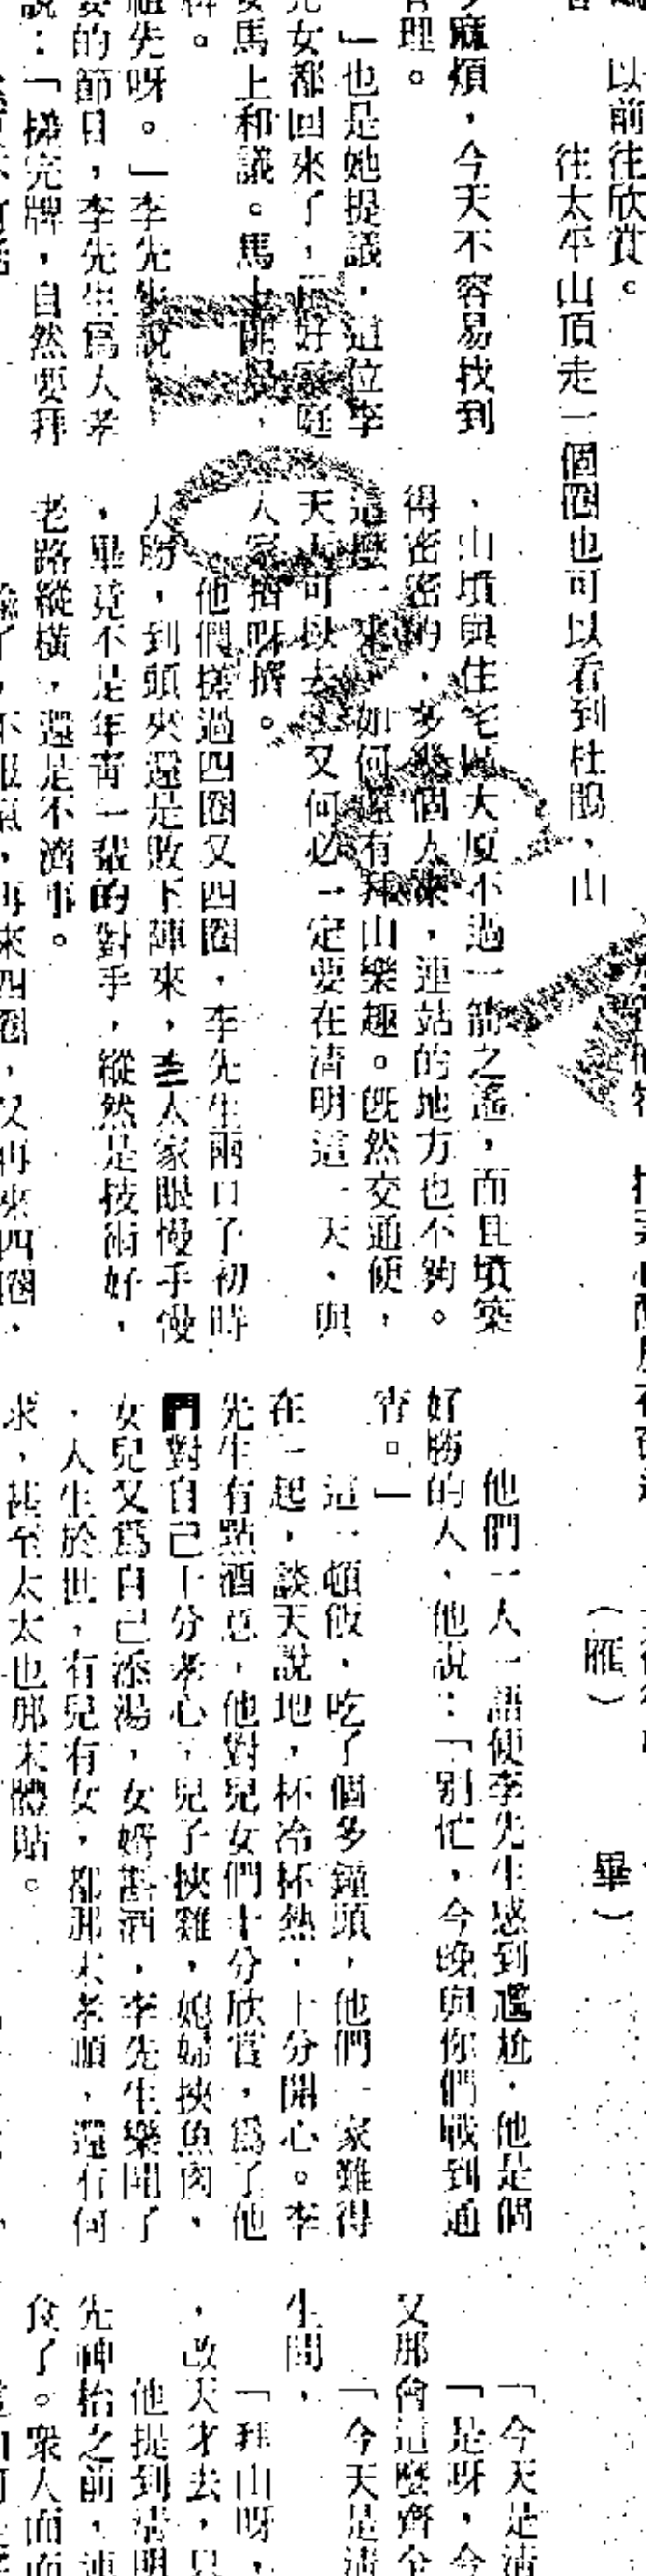 以前往欣賞。
往太平山頂走一個圈也可以看到杜鵑、山
（雁）
畢）
麻煩，今天不容易找到
理。
」也是她提議，這位李
女都回來了，正好家庭
馬上和議。馬上開局，
祖先呀。」李先生說
的節日，李先生爲人孝
說：「搓完牌，自然要拜
，山墳與住宅區大廈不過一箭之遙，而且墳築
得密密的，多幾個人來，連站的地方也不夠。
這麼一來，如何還有拜山樂趣。旣然交通便，
天天可以去，又何必一定要在清明這一天，與
人家擠呀擠。
他們搓過四圈又四圈，李先生兩口子初時
人勝，到頭來還是敗下陣來，老人家眼慢手慢
，畢竟不是年靑一輩的對手，縱然是技術好，
老路縱橫，還是不濟事。
輸了，不服氣，再來四圈，又再來四圈，
他們一人一語使李先生感到尷尬，他是個
好勝的人，他說：「別忙，今晚與你們戰到通
宵。」
這一頓飯，吃了個多鐘頭，他們一家難得
在一起，談天說地，杯冷杯熱，十分開心。李
先生有點酒意，他對兒女們十分欣賞，爲了他
們對自己十分孝心，兒子挾雞，媳婦挾魚肉，
女兒又爲自己添湯，女婿斟酒，李先生樂開了
，人生於世，有兒有女，都那末孝順，還有何
求，甚至太太也那末體貼。
「今天是清
「是呀，今
又那會這麼齊全
「今天是清
生問，
「拜山呀，
，改天才去，只
他提到清明
先神枱之前，連
食了。衆人面面